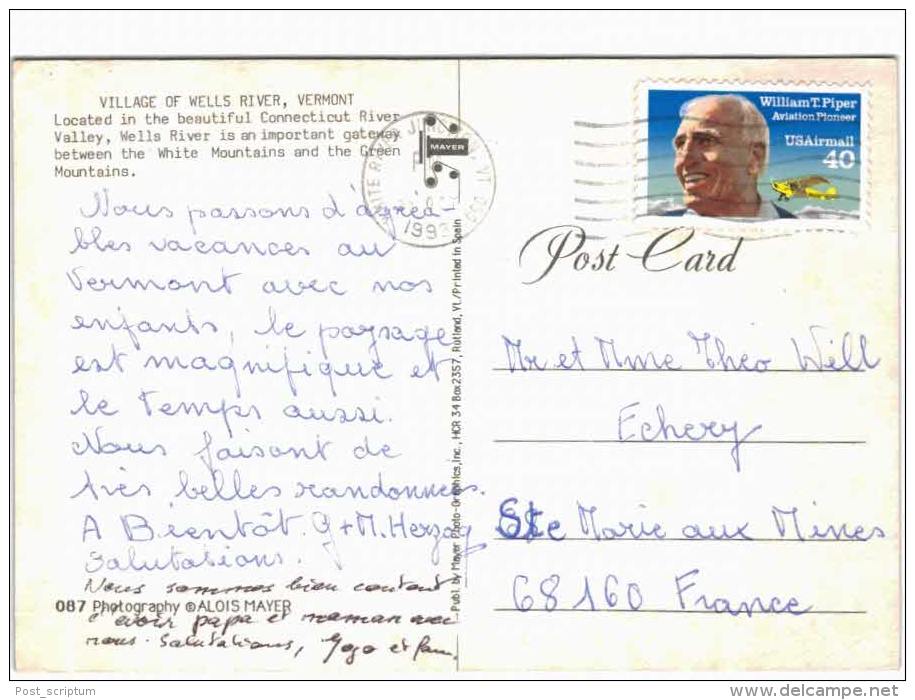 VILLAGE OF WELLS RIVER, VERMONT
Located in the beautiful Connecticut River
Valley, Wells River is an important gateway
between the White Mountains and the Green
Mountains.
Nous passons d'agréa-
bles vacances au
Vermont avec nos
enfants, le paysage
est magnifique et
le temps aussi.
Nous faisont de
très belles randonnées.
A Bientôt. G+M. Herzog
Salutations.
Nous sommes bien contant
d'avoir papa et maman avec
nous. Salutations, et
087 Photography © ALOIS MAYER
MAYER
1993
Publ. by Mayer Photo-Graphics, Inc., HCR 34 Box 2357, Rutland, Vt./Printed in Spain
William T. Piper
Aviation Pioneer
USAirmail
40
Post Card
Mr et Mme Théo Will
Echery
Ste Marie aux Mines
68160 France
Post_scriptum
delcampe.net